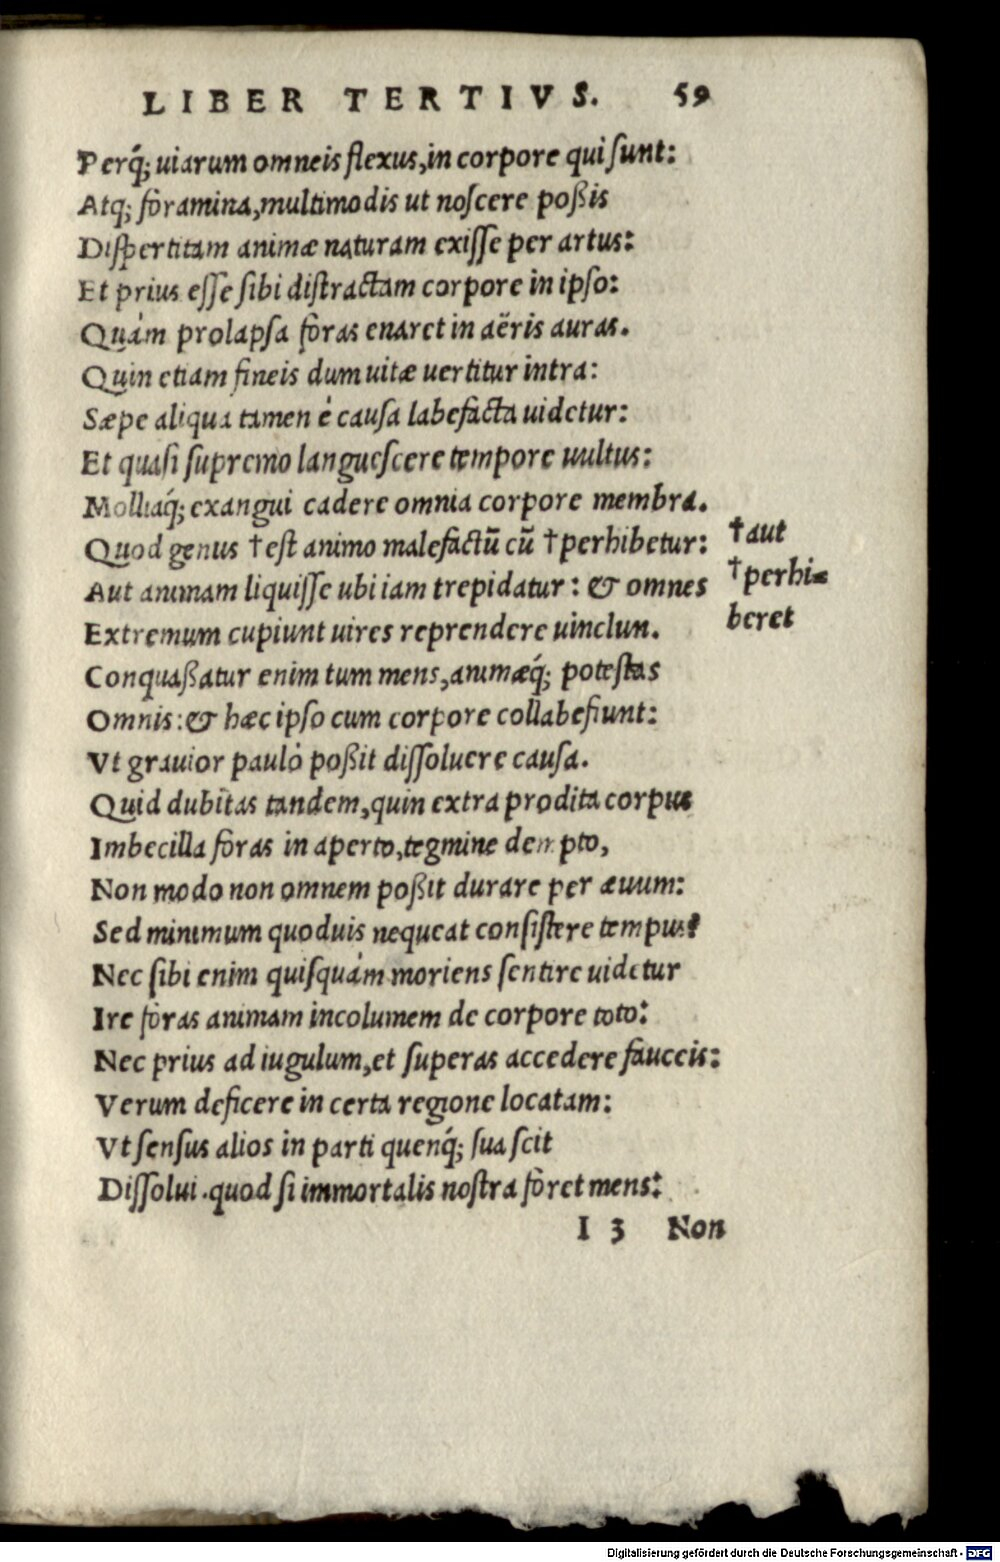 LIBER TERTIVS. 59
Perq́; uiarum omneis flexus, in corpore qui ſunt:
Atq; foramina, multimodis ut noſcere poßis
Diſpertitam animæ naturam exiſſe per artus:
Et prius eſſe ſibi diſtractam corpore in ipſo:
Quàm prolapſa foras enaret in aëris auras.
Quin etiam fineis dum uitæ uertitur intra:
Sæpe aliqua tamen è cauſa labefacta uidetur:
Et quaſi ſupremo langueſcere tempore uultus:
Molliaq́; exangui cadere omnia corpore membra.
Quod genus †eſt animo malefactū cū †perhibetur: †aut
Aut animam liquiſſe ubi iam trepidatur: & omnes †perhi=
Extremum cupiunt uires reprendere uinclun. beret
Conquaßatur enim tum mens, animæq́; poteſtas
Omnis: & hæc ipſo cum corpore collabefiunt:
Vt grauior paulò poßit diſſoluere cauſa.
Quid dubitas tandem, quin extra prodita corpus
Imbecilla foras in aperto, tegmine dempto,
Non modo non omnem poßit durare per æuum:
Sed minimum quoduis nequeat conſiſtere tempus?
Nec ſibi enim quiſquàm moriens ſentire uidetur
Ire foras animam incolumem de corpore toto:
Nec prius ad iugulum, et ſuperas accedere fauceis:
Verum deficere in certa regione locatam:
Vt ſenſus alios in parti quenq́; ſua ſcit
Diſſolui. quod ſi immortalis noſtra foret mens:
I 3 Non
Digitalisierung gefördert durch die Deutsche Forschungsgemeinschaft - DFG